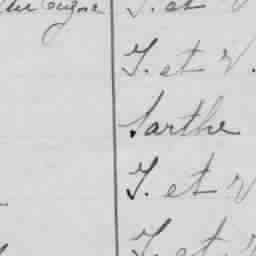 I. et V.
I. et V.
Sarthe
I. et V.
I. et V.